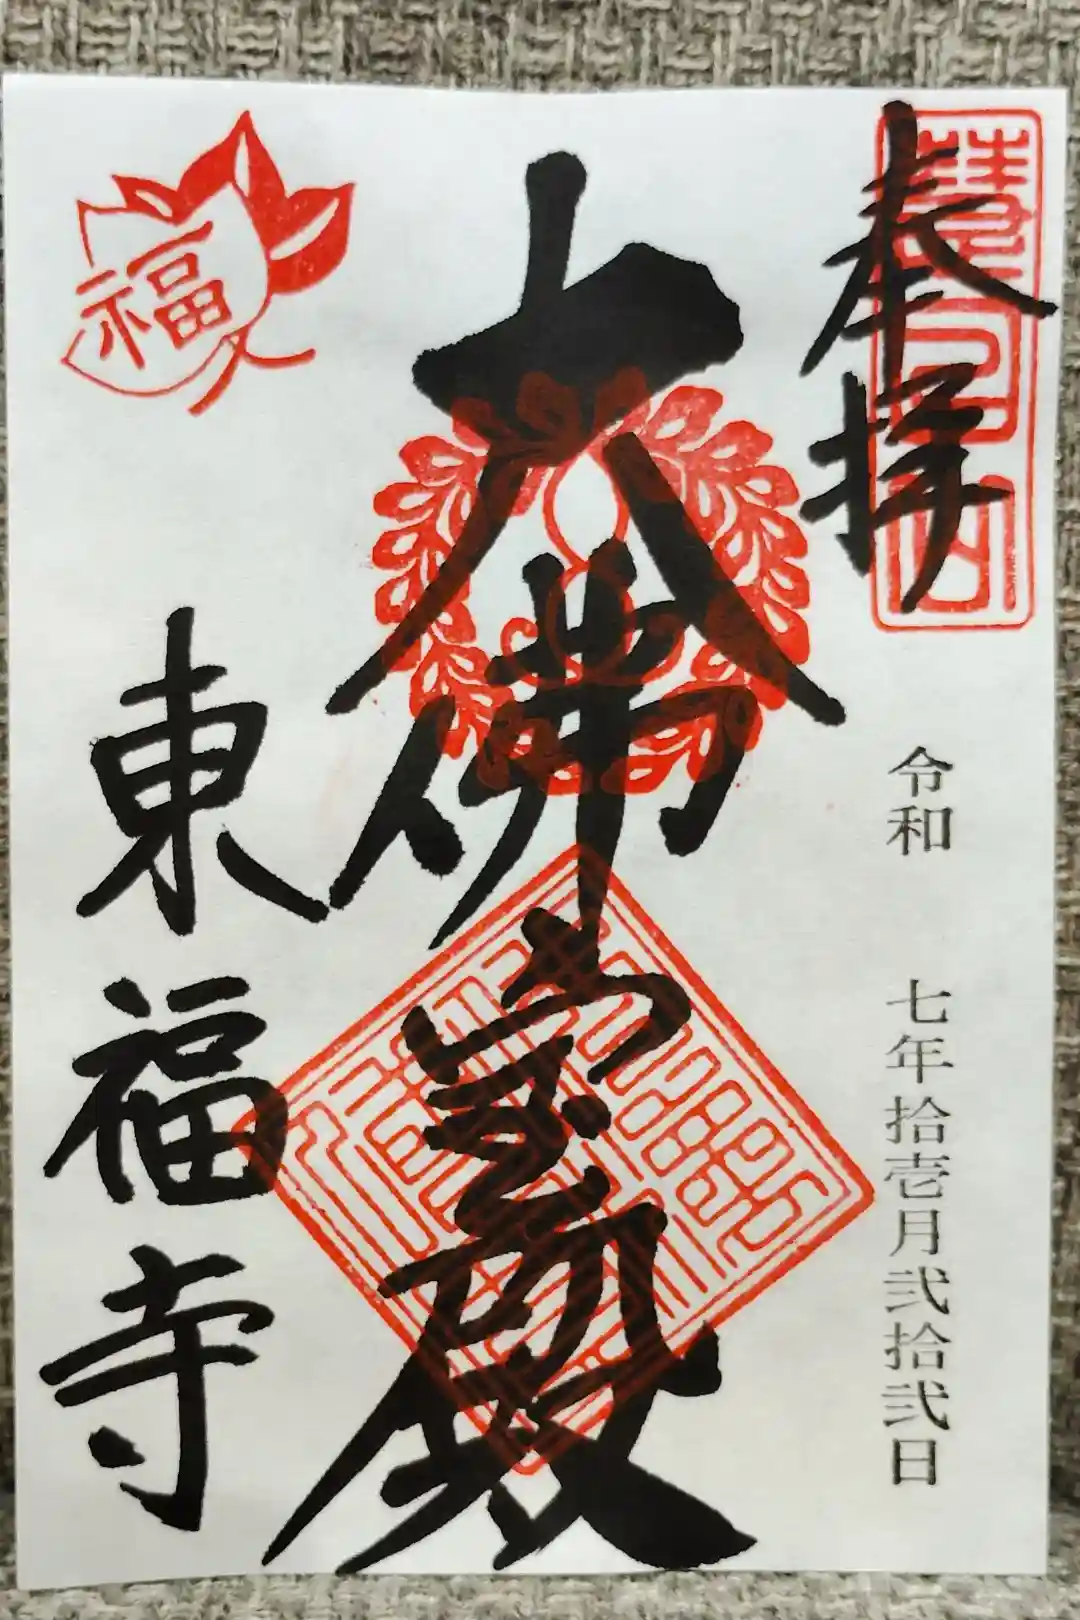 奉拝
慧日山
令和 七年拾壱月弐拾弐日
大佛宝殿
福
東福寺